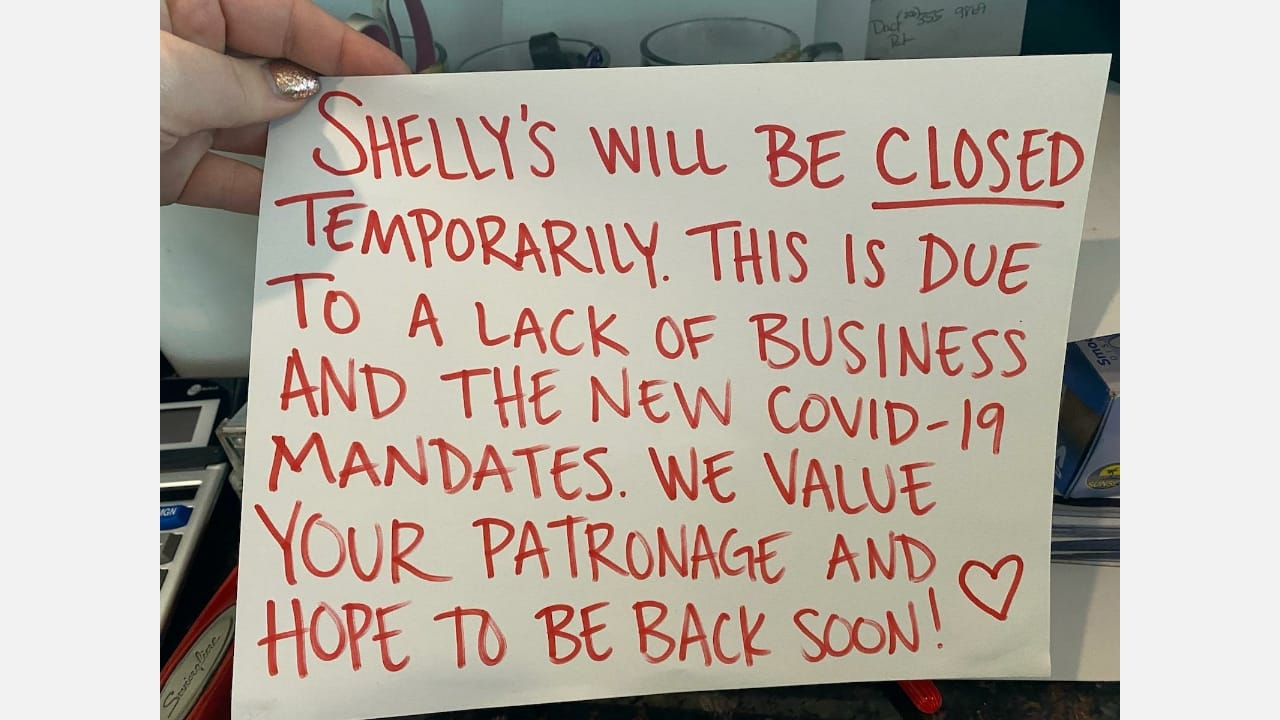 Dact 555 9869
SHELLY'S WILL BE CLOSED
TEMPORARILY. THIS IS DUE
TO A LACK OF BUSINESS
AND THE NEW COVID-19
MANDATES. WE VALUE
YOUR PATRONAGE AND
HOPE TO BE BACK SOON!
MGN
Swingline